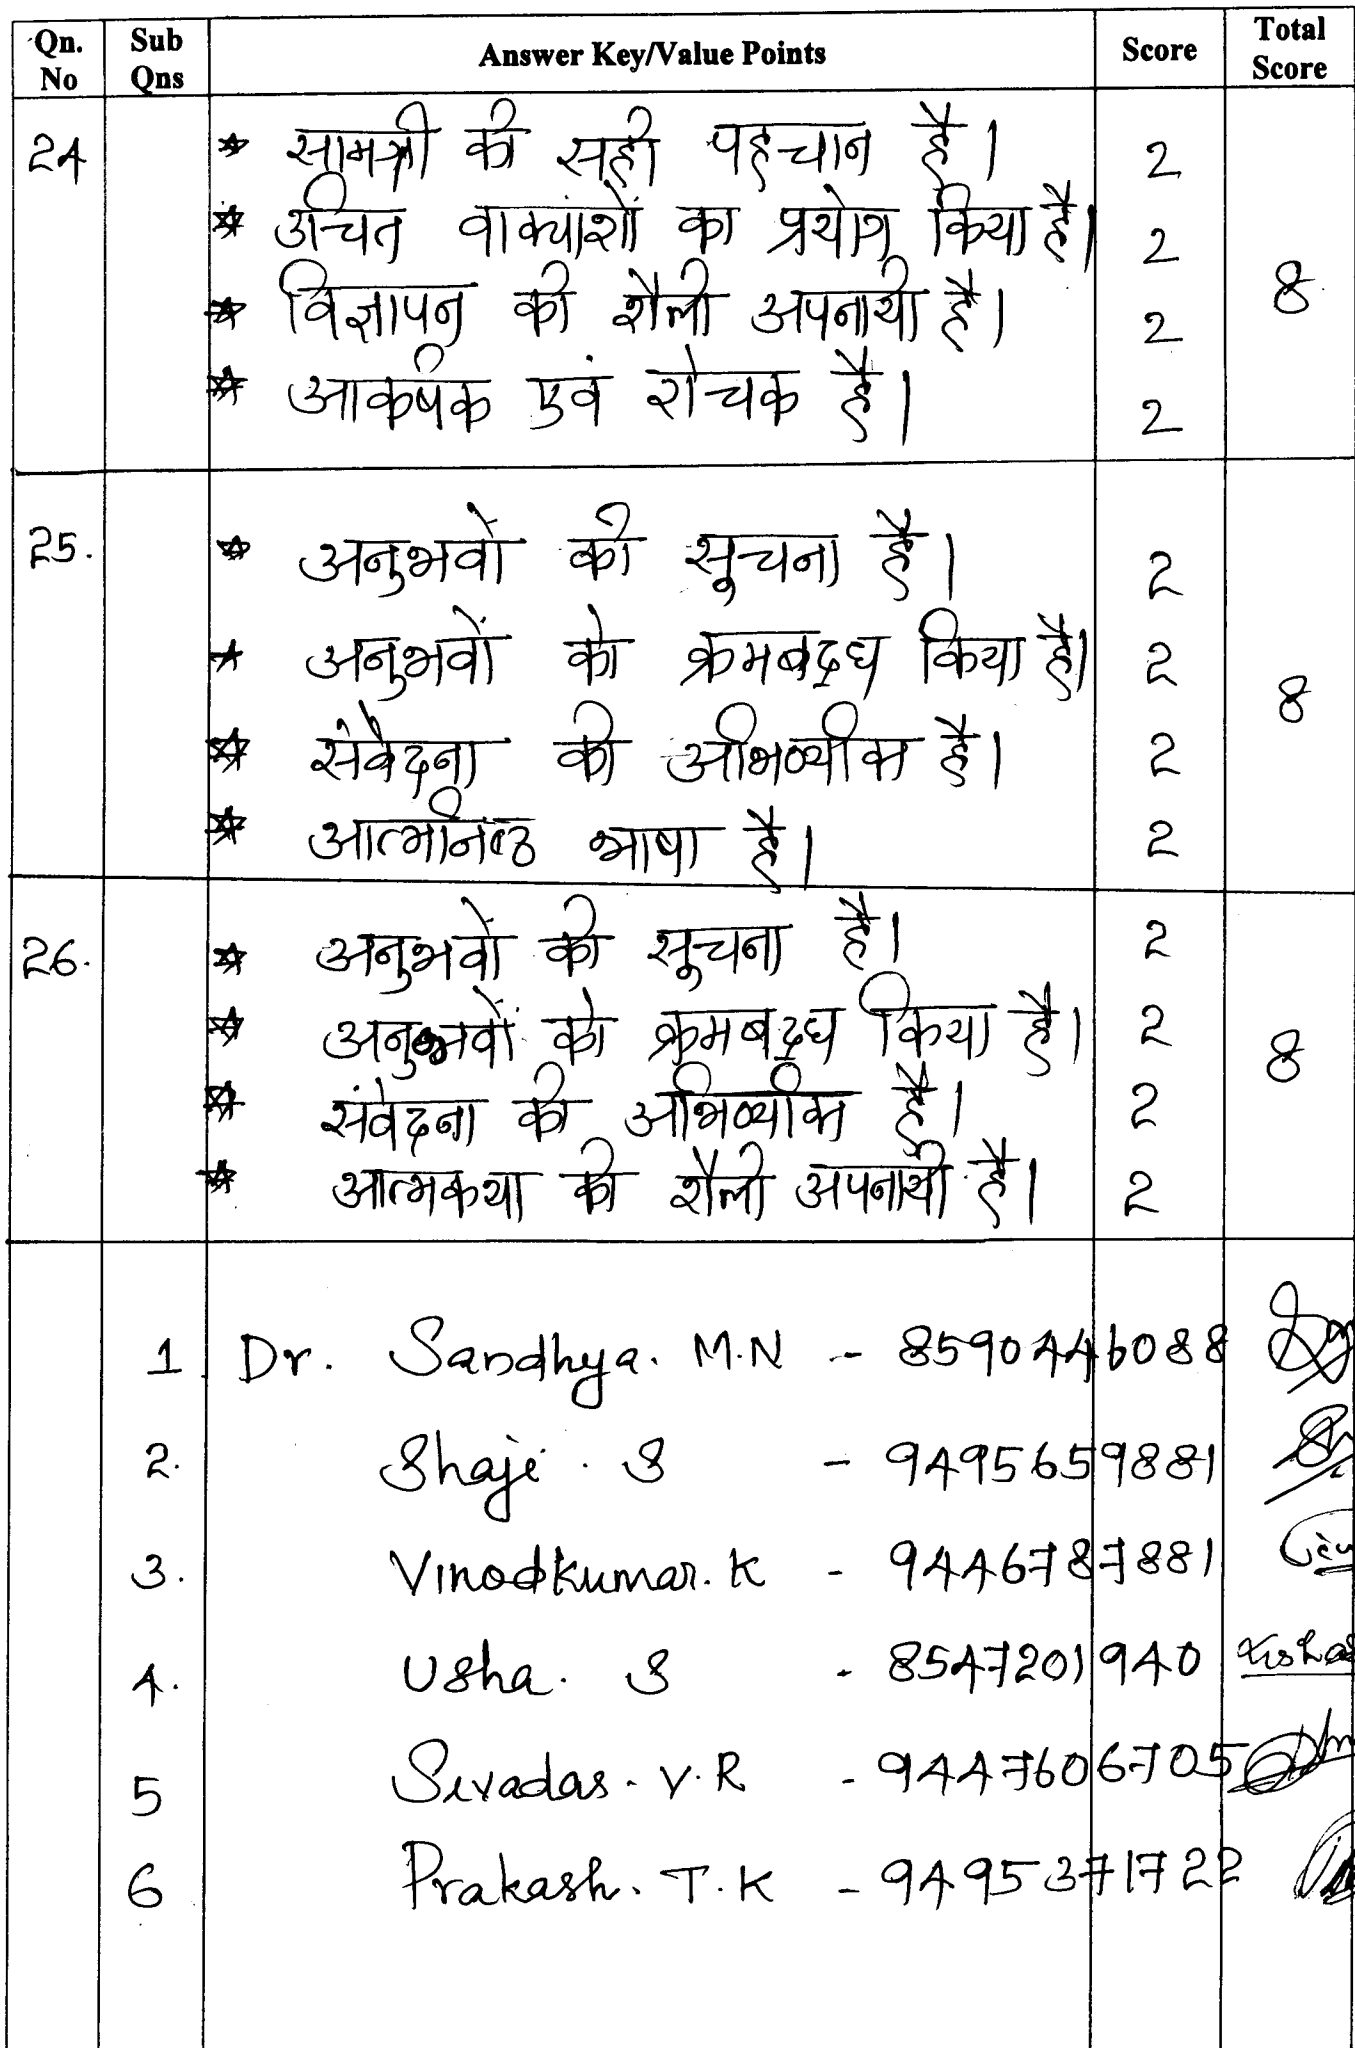 Qn. No Sub Qns Answer Key/Value Points Score Total Score
24 * सामग्री की सही पहचान है। 2
* उचित वाक्यांशों का प्रयोग किया है। 2
8
* विज्ञापन की शैली अपनायी है। 2
* आकर्षक एवं रोचक है। 2
25. * अनुभवों की सूचना है। 2
* अनुभवों को क्रमबद्ध किया है। 2
8
* संवेदना की अभिव्यक्ति है। 2
* आत्मनिष्ठ भाषा है। 2
26. * अनुभवों की सूचना है। 2
* अनुभवों को क्रमबद्ध किया है। 2
8
* संवेदना की अभिव्यक्ति है। 2
* आत्मकथा की शैली अपनायी है। 2
1 Dr. Sandhya. M.N - 8590446088
2. Shaji . S - 9495659881
3. Vinodkumar. K - 9446787881
4. Usha. S - 8547201940
5 Sivadas. V. R - 9447606705
6 Prakash. T. K - 9495371722